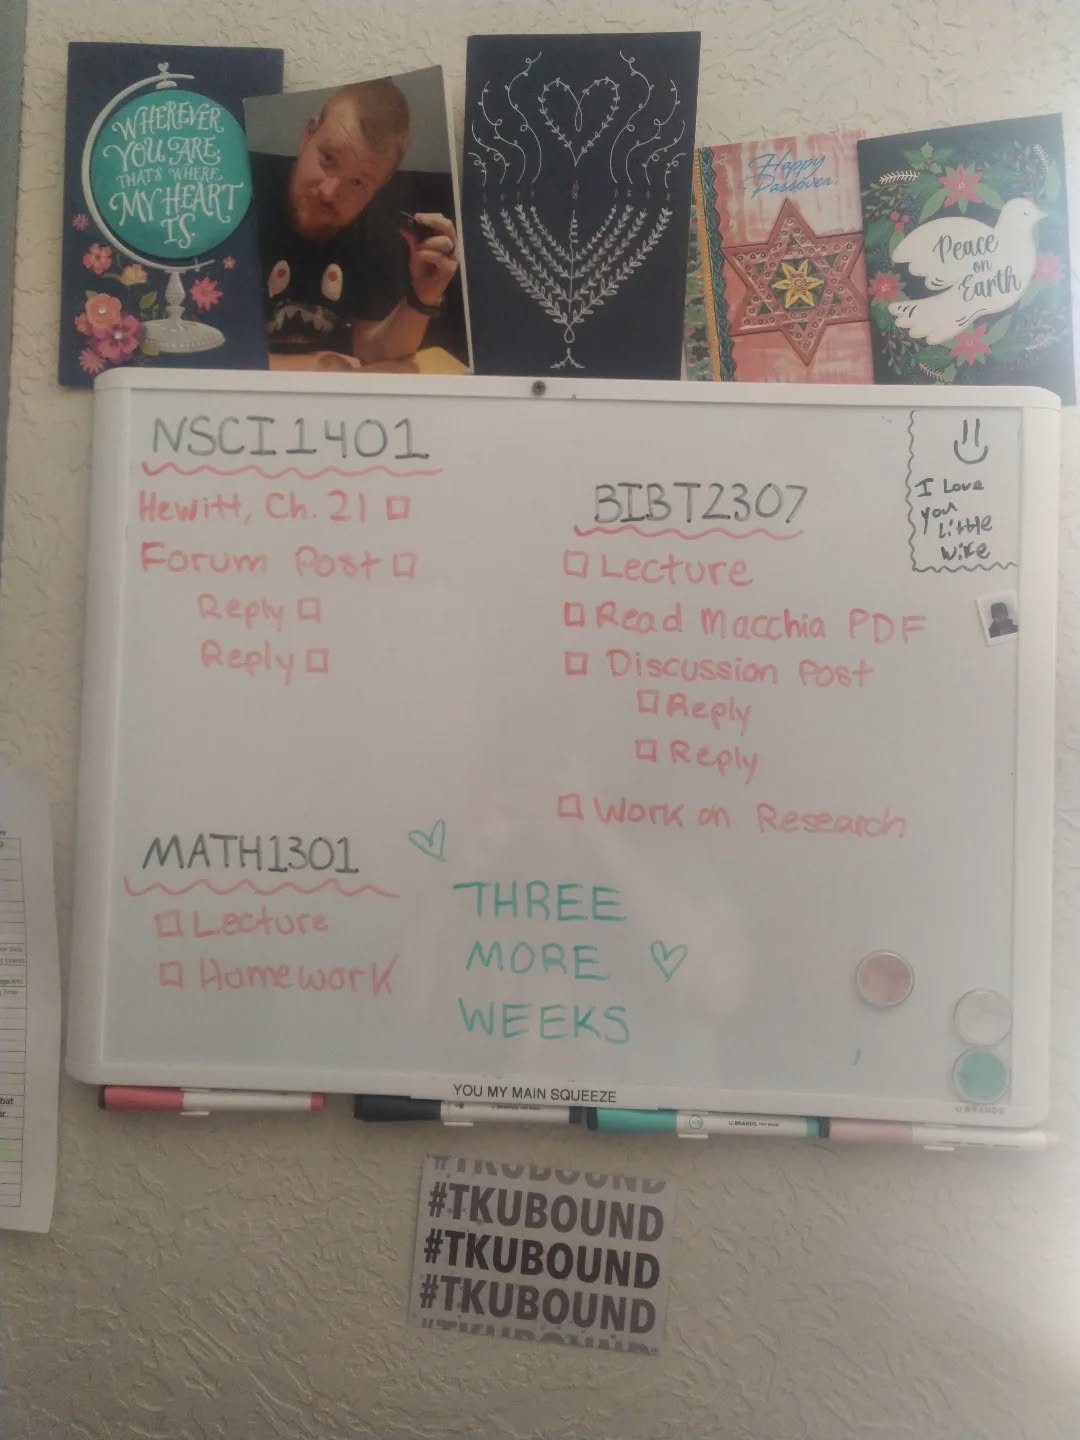 WHEREVER
YOU ARE,
THAT'S WHERE
MY HEART
IS.
Happy
Passover
Peace
on
Earth
NSCI1401
Hewitt, Ch. 21
Forum Post
Reply
Reply
BIBT2307
Lecture
Read Macchia PDF
Discussion Post
Reply
Reply
Work on Research
I Love
you
Little
wife
MATH1301
Lecture
Homework
THREE
MORE
WEEKS
YOU MY MAIN SQUEEZE
U BRANDS
U BRANDS
U BRANDS
#TKUBOUND
#TKUBOUND
#TKUBOUND
#TKUBOUND
#TKUBOUND